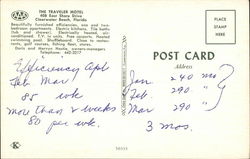 AAA
THE TRAVELER MOTEL
408 East Shore Drive
Clearwater Beach, Florida
Beautifully furnished efficiencies, one and two
bedroom apartments. Electric kitchens. Tile baths,
tub and shower. Electrically heated, air-
conditioned. T.V. in units. Free airports. Heated
swimming pool. Shuffleboard. Close to restau-
rants, golf courses, fishing fleet, stores.
Doris and Horace Hawke, owners-managers
Telephone: 442-2017
POST CARD
Address
PLACE
STAMP
HERE
Efficiency Apt
Feb Mar
85 wk
more than 2 weeks
80 per wk
Jan 240 mo
Feb 290 "
Mar 290 "
3 mos.
K